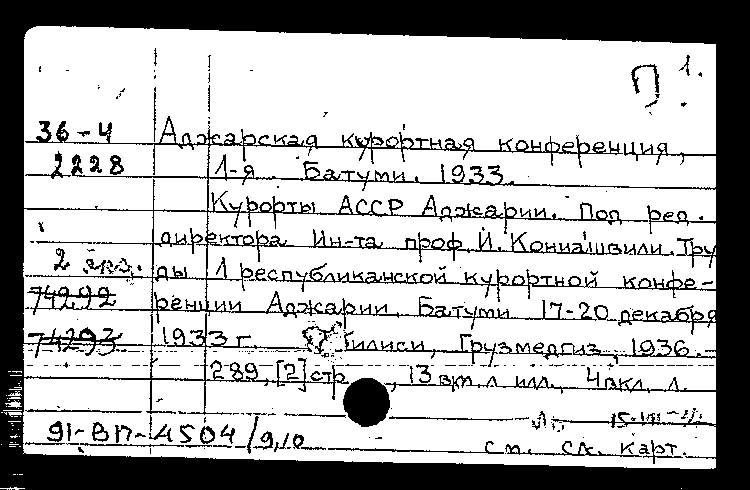 П 1.
36-4 Аджарская курортная конференция,
2228 1-я Батуми. 1933.
Курорты АССР Аджарии. Под ред.
директора Ин-та проф. И. Кониашвили. Тру
2 экз. ды 1 республиканской курортной конфе-
74292 ренции Аджарии. Батуми 17-20 декабря
74293 1933 г. Тбилиси, Грузмедгиз, 1936.-
289, [2] стр., 13 вкл. л. илл., 4 вкл. л.
91-ВП-4504/9,10
см. сл. карт.